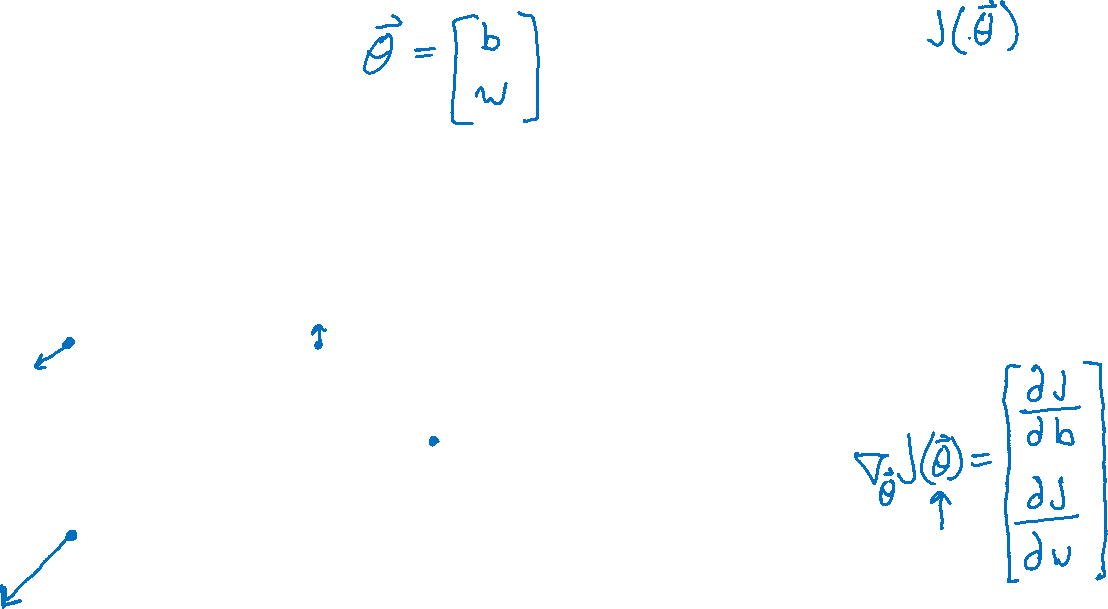 θ⃗ = [b
w]
J(θ⃗)
∇_θ⃗ J(θ⃗) = [∂J/∂b
∂J/∂w]